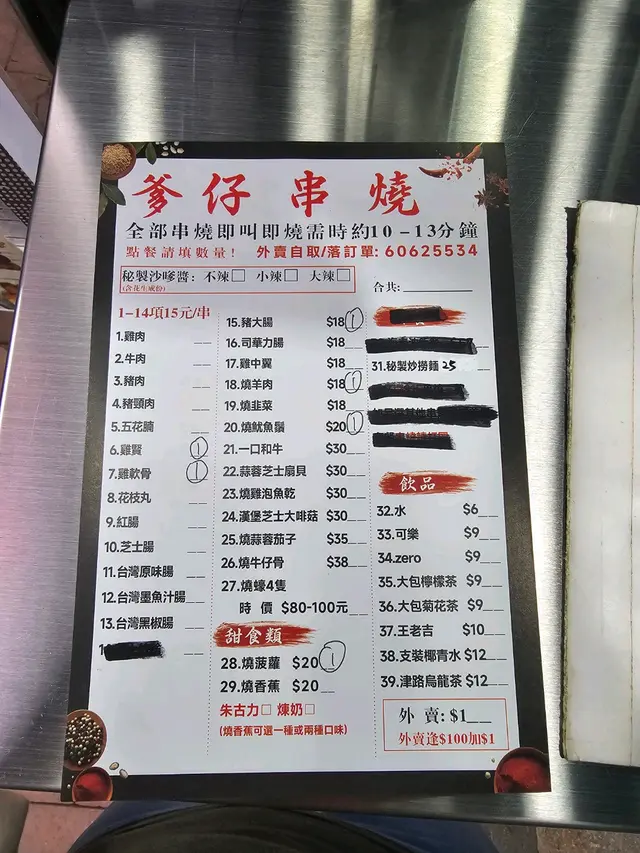 爹仔串燒
全部串燒即叫即燒需時約10-13分鐘
點餐請填數量! 外賣自取/落訂單: 60625534
秘製沙嗲醬: 不辣□ 小辣□ 大辣□
(含花生成份)
合共:
1-14項15元/串
1.雞肉
2.牛肉
3.豬肉
4.豬頸肉
5.五花腩
6.雞腎 1
7.雞軟骨 1
8.花枝丸
9.紅腸
10.芝士腸
11.台灣原味腸
12.台灣墨魚汁腸
13.台灣黑椒腸
15.豬大腸 $18 1
16.司華力腸 $18
17.雞中翼 $18
18.燒羊肉 $18 1
19.燒韭菜 $18
20.燒魷魚鬚 $20 1
21.一口和牛 $30
22.蒜蓉芝士扇貝 $30
23.燒雞泡魚乾 $30
24.漢堡芝士大啡菇 $30
25.燒蒜蓉茄子 $35
26.燒牛仔骨 $38
27.燒蠔4隻
時價 $80-100元
甜食類
28.燒菠蘿 $20 1
29.燒香蕉 $20
朱古力□ 煉奶□
(燒香蕉可選一種或兩種口味)
31.秘製炒撈麵 25
飲品
32.水 $6
33.可樂 $9
34.zero $9
35.大包檸檬茶 $9
36.大包菊花茶 $9
37.王老吉 $10
38.支裝椰青水 $12
39.津路烏龍茶 $12
外賣: $1
外賣逢$100加$1